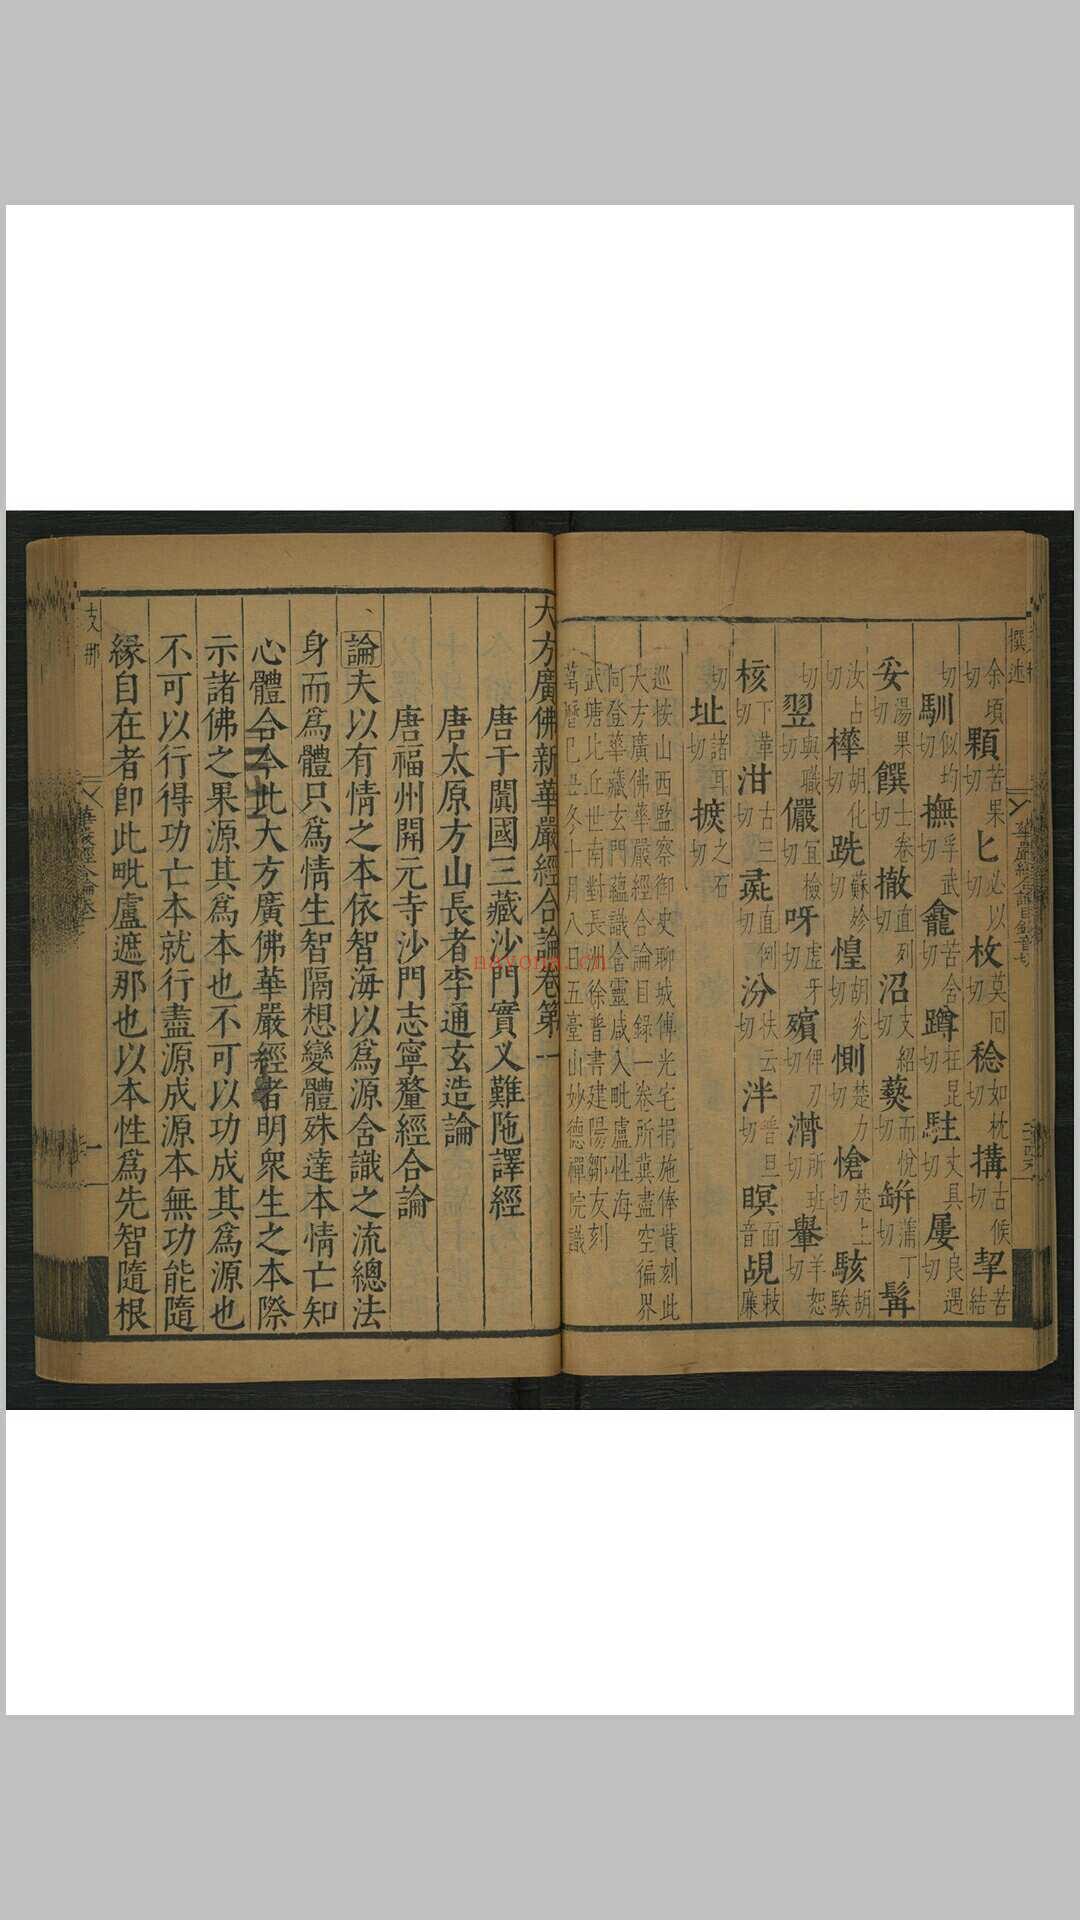 撰述
余頃切 顆苦果切 匕必以切 枚莫囘切 稔如枕切 搆古候切 挈苦結
切 馴似均切 撫孚武切 龕苦含切 蹲在昆切 駐丈具切 屢良遇切
妥湯果切 饌士卷切 撤直列切 沼支紹切 爇而悅切 缾蒲丁切 髯
汝占切 樺胡化切 跣蘇紾切 惶胡光切 惻楚力切 愴楚上切 駭胡騃
切 翌與職切 儼宜檢切 呀虛牙切 殯俾刃切 潸所班切 轝羊恕切
核下革切 泔古三切 彘直例切 汾扶云切 泮普旦切 瞑音面 覘敕廉
切 址諸耳切 摭之石切
巡按山西監察御史聊城傅光宅捐施俸貲刻此
大方廣佛華嚴經合論目錄一卷所冀盡空徧界
同登華藏玄門蘊識含靈咸入毗盧性海
武塘比丘世南對長洲徐普書建陽鄒友刻
萬曆己丑冬十月八日五臺山妙德禪院識
大方廣佛新華嚴經合論卷第一
唐于闐國三藏沙門實叉難陁譯經
唐太原方山長者李通玄造論
唐福州開元寺沙門志寧釐經合論
論夫以有情之本依智海以爲源含識之流總法
身而爲體只爲情生智隔想變體殊達本情亡知
心體合今此大方廣佛華嚴經者明衆生之本際
示諸佛之果源其爲本也不可以功成其爲源也
不可以行得功亡本就行盡源成源本無功能隨
緣自在者卽此毗盧遮那也以本性爲先智隨根
支那
華嚴經合論卷一
一
nayona.cn